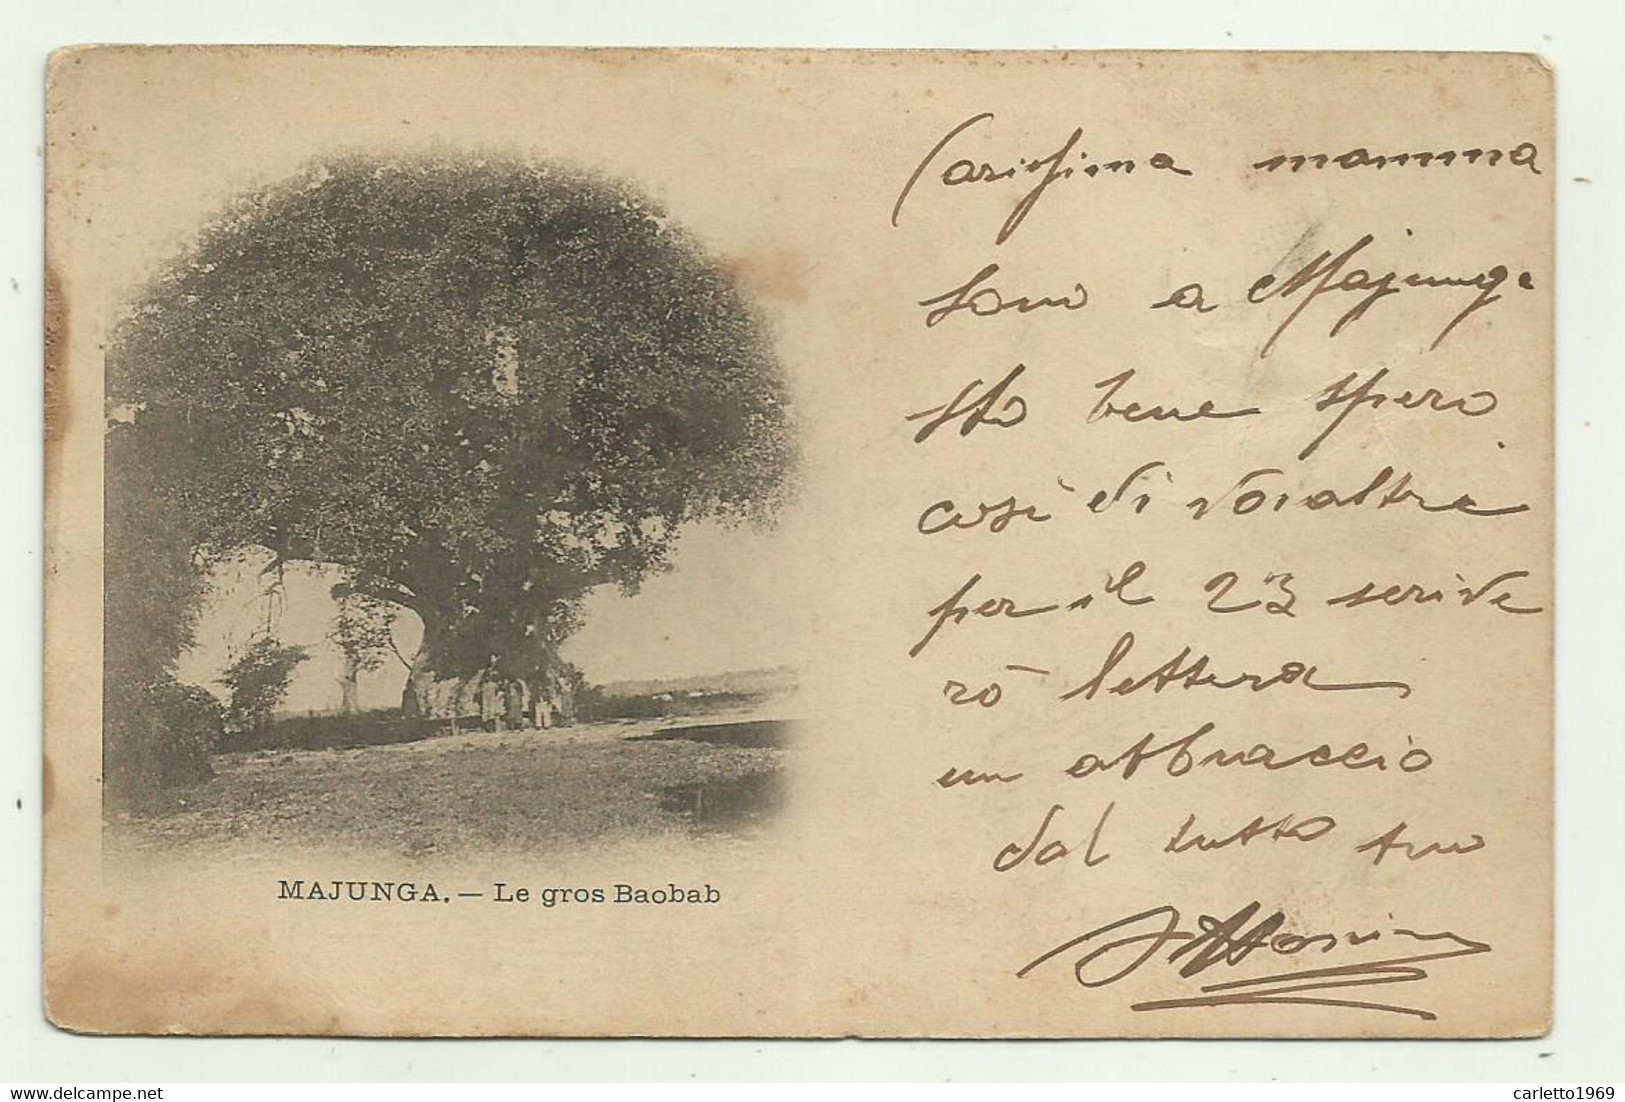 Carissima mamma
sono a Majunga
sto bene spero
così di voialtri
per il 23 scrive
rò lettera
un abbraccio
dal tutto tuo
MAJUNGA. — Le gros Baobab
carletto1969